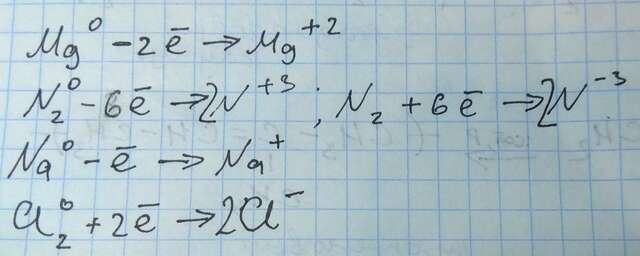 Mg⁰ – 2ē → Mg⁺²
N₂⁰ – 6ē → 2N⁺³ ; N₂ + 6ē → 2N⁻³
Na⁰ – ē → Na⁺
Cl₂⁰ + 2ē → 2Cl⁻